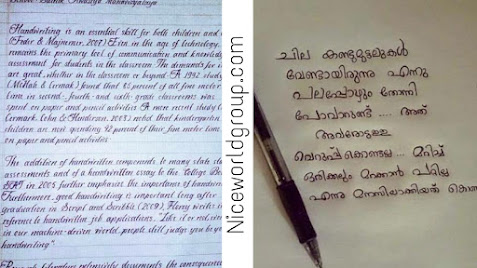 Handwriting is an essential skill for both children and
(Feder & Majnemer, 2007) Even in the age of technology,
remains the primary tool of communication and knowledge
assessment for students in the classroom. The demands for
are great, whether in the classroom or beyond. A 1992 study
found that 85 percent of all fine motor
time in second-, fourth- and sixth-grade classrooms was
spent on paper and pencil activities. A more recent study
Cermark, Cohn & Hendirson, 2003) noted that kindergarten
children are now spending 42 percent of their fine motor time
on paper and pencil activities.
The addition of handwritten components to many state
assessments and of a handwritten essay to the College
SAT in 2005 further emphasize the importance of handwriting
Furthermore, good handwriting is important long after
graduation in Script and Scribble (2009), Florey writes in
reference to handwritten job applications, "Like it or not, even
in our machine-driven world, people still judge you by your
handwriting"
literature extensively documents the consequences
Niceworldgroup.com
ചില കണ്ടുമുട്ടലുകൾ
വേണ്ടായിരുന്നു എന്നു
ചിലപ്പോഴും തോന്നി
പോവാറുണ്ട് .... അത്
അവരോടുള്ള
വെറുപ്പ് കൊണ്ടല്ല .... മറിച്ച്
ഒരിക്കലും മറക്കാൻ പറ്റില്ല
എന്നു മനസിലാക്കിയത് കൊണ്ട